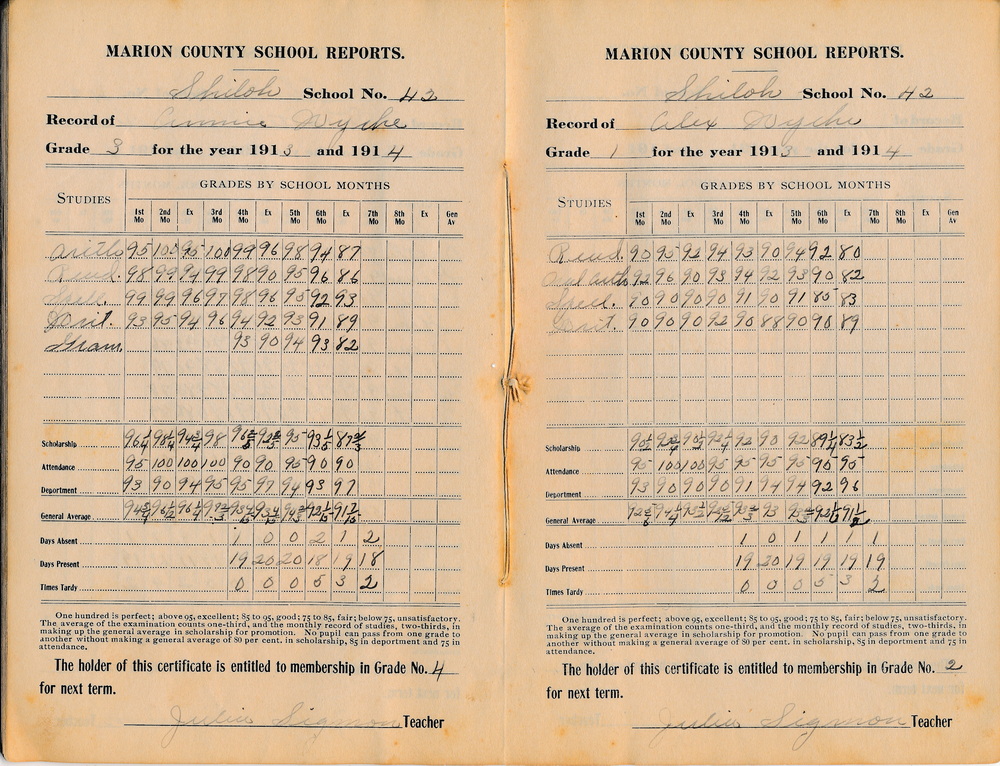 MARION COUNTY SCHOOL REPORTS.
Shiloh School No. 42
Record of Annie Wyche
Grade 3 for the year 1913 and 1914
STUDIES
GRADES BY SCHOOL MONTHS
1st Mo 2nd Mo Ex 3rd Mo 4th Mo Ex 5th Mo 6th Mo Ex 7th Mo 8th Mo Ex Gen Av
Arith 95 100 95 100 99 96 98 94 87
Read. 98 99 94 99 98 90 95 96 86
Spell. 99 99 96 97 98 96 95 92 93
Writ. 93 95 94 96 94 92 93 91 89
Gram. 93 90 94 93 82
Scholarship 96 1/4 98 1/4 94 3/4 98 95 93 1/5
Attendance 95 100 100 100 90 90 95 90 90
Department 93 90 94 95 95 97 94 93 97
General Average
Days Absent 1 0 0 2 1 2
Days Present 19 20 20 18 19 18
Times Tardy 0 0 0 5 3 2
One hundred is perfect; above 95, excellent; 85 to 95, good; 75 to 85, fair; below 75, unsatisfactory.
The average of the examination counts one-third, and the monthly record of studies, two-thirds, in
making up the general average in scholarship for promotion. No pupil can pass from one grade to
another without making a general average of 80 per cent. in scholarship, 85 in department and 75 in
attendance.
The holder of this certificate is entitled to membership in Grade No. 4
for next term.
Julia Sigmon Teacher
MARION COUNTY SCHOOL REPORTS.
Shiloh School No. 42
Record of Alex Wyche
Grade 1 for the year 1913 and 1914
STUDIES
GRADES BY SCHOOL MONTHS
1st Mo 2nd Mo Ex 3rd Mo 4th Mo Ex 5th Mo 6th Mo Ex 7th Mo 8th Mo Ex Gen Av
Read. 90 95 92 94 93 90 94 92 80
Oral Arith 92 96 90 93 94 92 93 90 82
Spell. 90 90 90 90 91 90 91 85 83
Writ. 90 90 90 92 90 88 90 90 89
Scholarship 92 90 92 89 1/4 83 1/2
Attendance 95 100 100 95 95 95 95 95 95
Department 93 90 90 90 91 94 94 92 96
General Average 93
Days Absent 1 0 1 1 1 1
Days Present 19 20 19 19 19 19
Times Tardy 0 0 0 5 3 2
One hundred is perfect; above 95, excellent; 85 to 95, good; 75 to 85, fair; below 75, unsatisfactory.
The average of the examination counts one-third, and the monthly record of studies, two-thirds, in
making up the general average in scholarship for promotion. No pupil can pass from one grade to
another without making a general average of 80 per cent. in scholarship, 85 in department and 75 in
attendance.
The holder of this certificate is entitled to membership in Grade No. 2
for next term.
Julia Sigmon Teacher